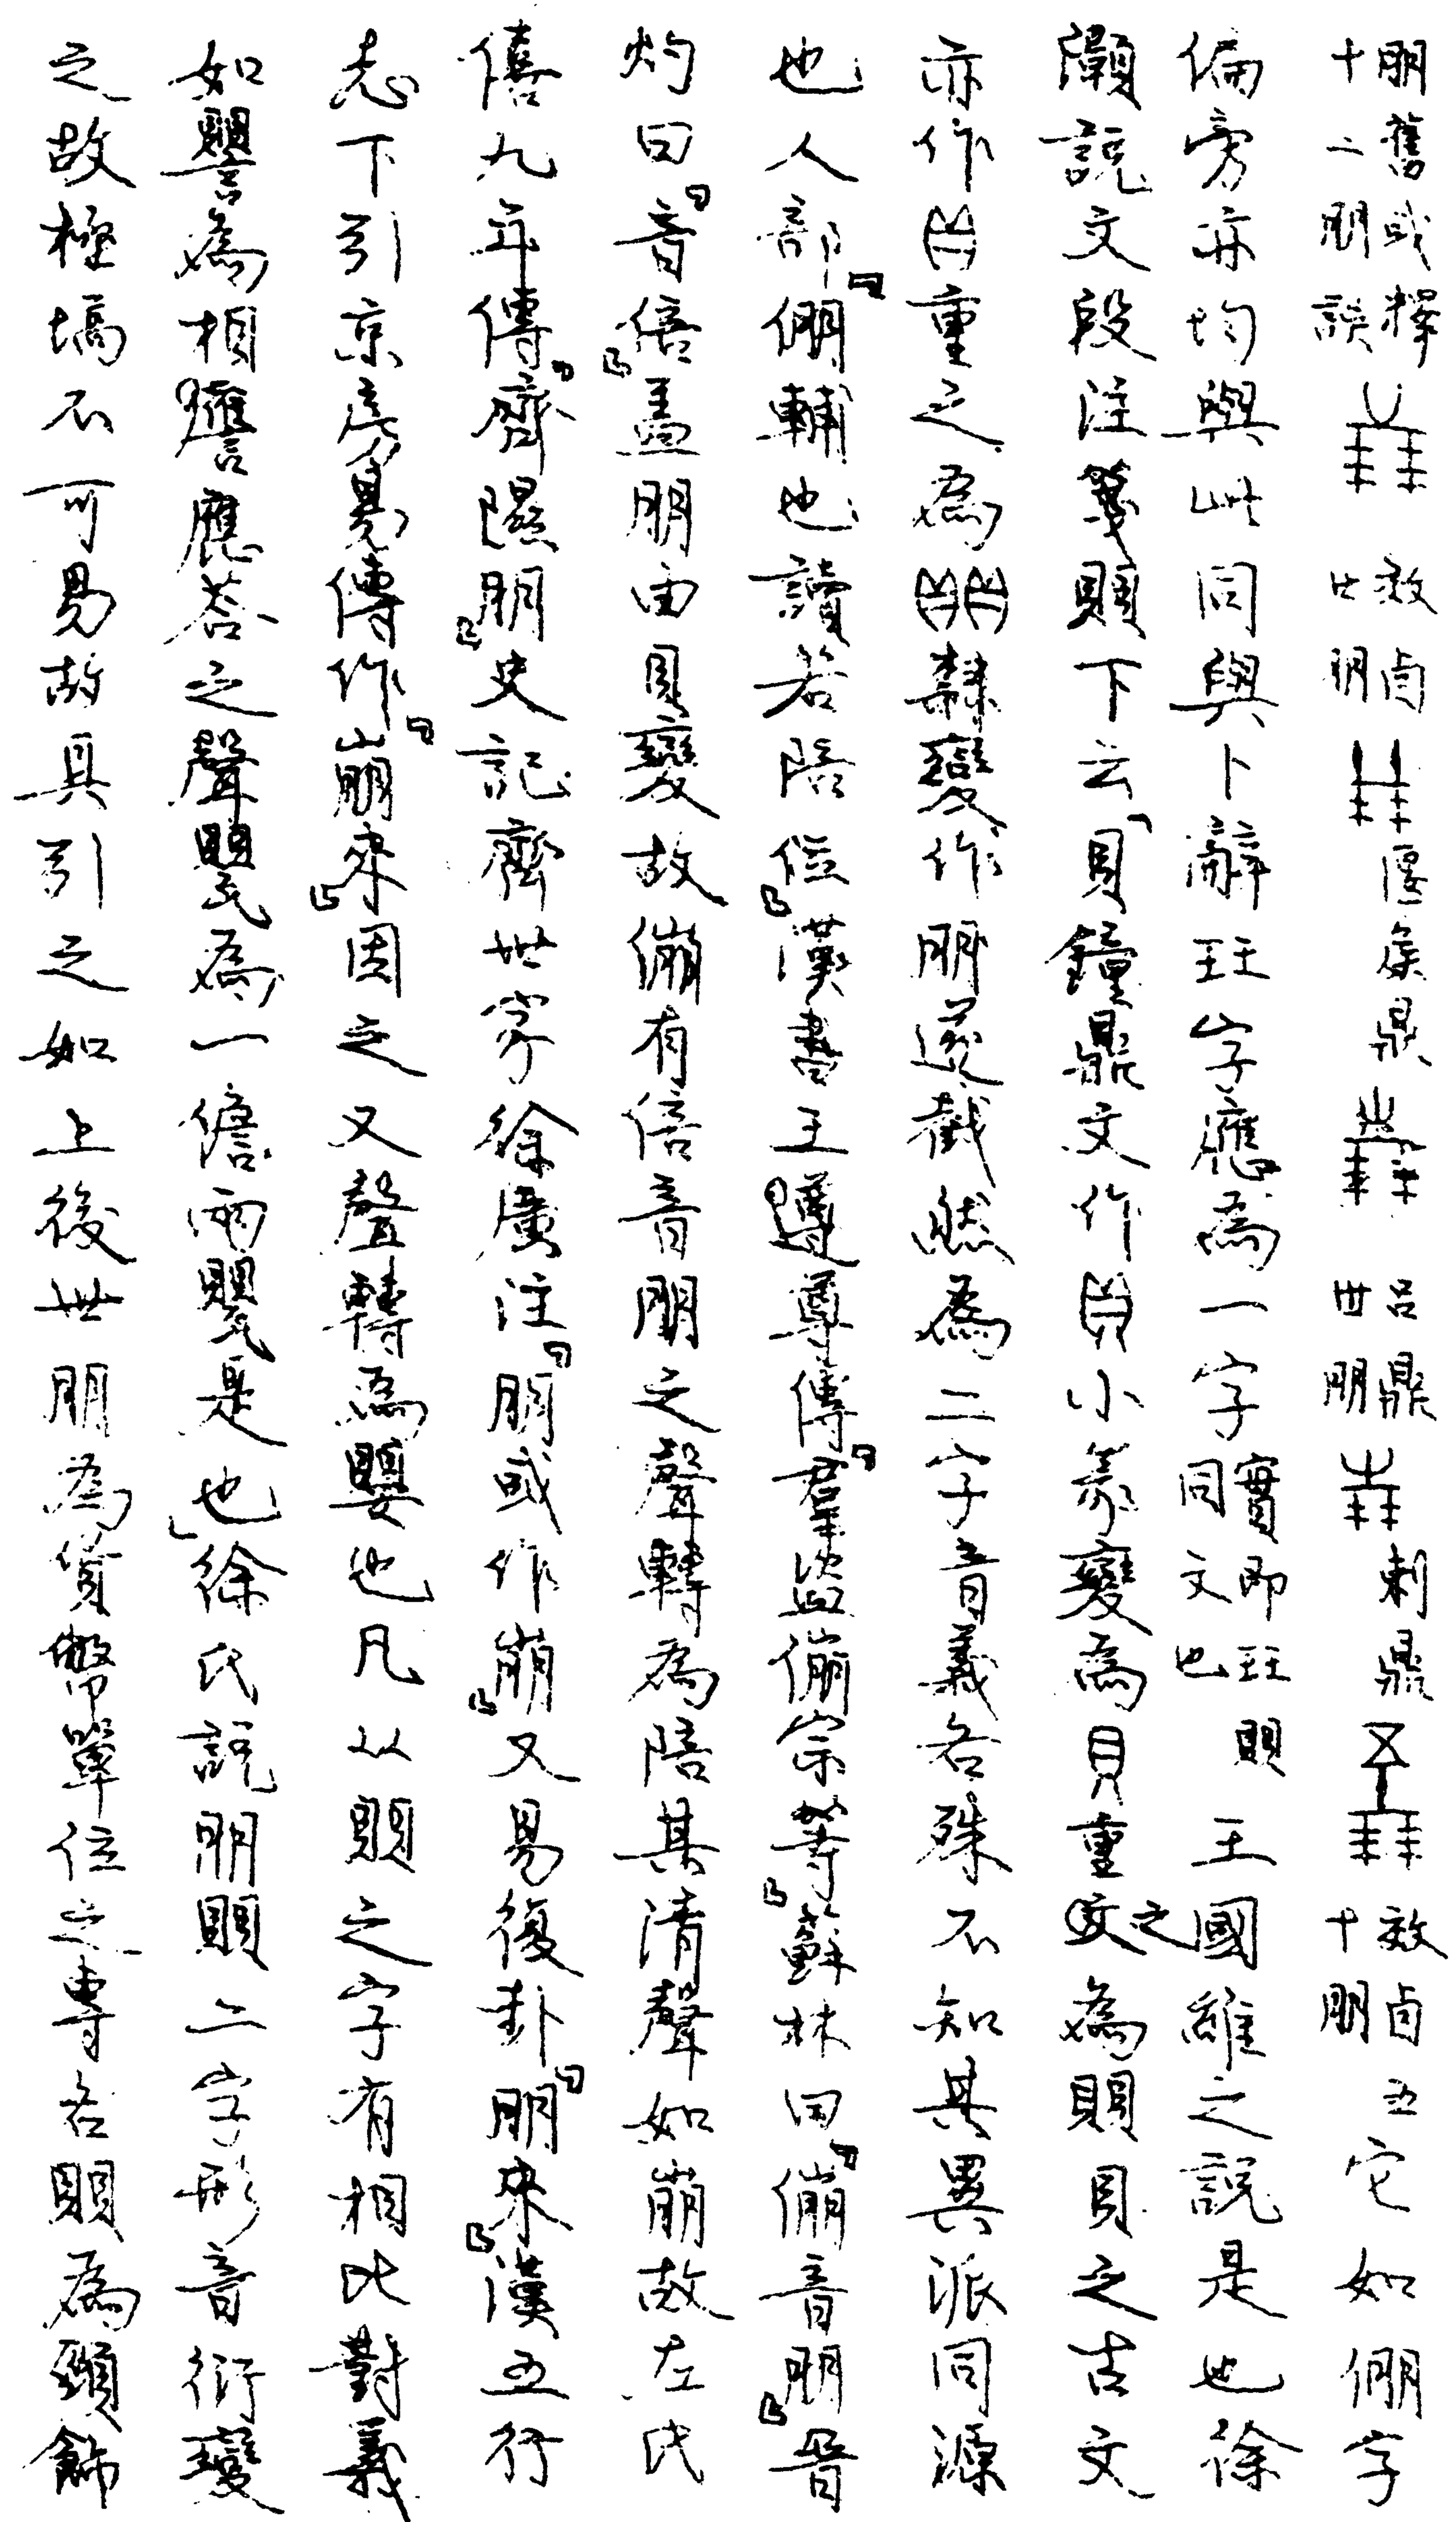 朋舊或擇十二朋誤 效卣廿朋 匽矦鼎 呂鼎卌朋 剌鼎 效卣十朋 五它如倗字
偏旁亦均與此同與卜辭玨字應為一字實即玨賏同文也王國維之說是也徐
灝說文段注箋賏下云「貝鐘鼎文作 小篆變為貝重之為賏貝之古文
亦作 重之為 隸變作朋遂截然為二字音義各殊不知其異派同源
也人部『倗輔也讀若陪位』漢書王尊傳『羣盜傰宗等』蘇林曰『傰音朋』晉
灼曰『音倍』蓋朋由貝變故傰有倍音朋之聲轉為陪其清聲如崩故左氏
僖九年傳『齊隰朋』史記齊世家徐廣注『朋或作崩』又易復卦『朋來』漢五行
志下引京房易傳作『崩來』因之又聲轉為嬰也凡从賏之字有相比對義
如譻為相譍應荅之聲甖為一儋兩罌是也」徐氏說朋賏二字形音衍變
之故極塙不可易故具引之如上後世朋為貨幣單位之專名賏為頸飾